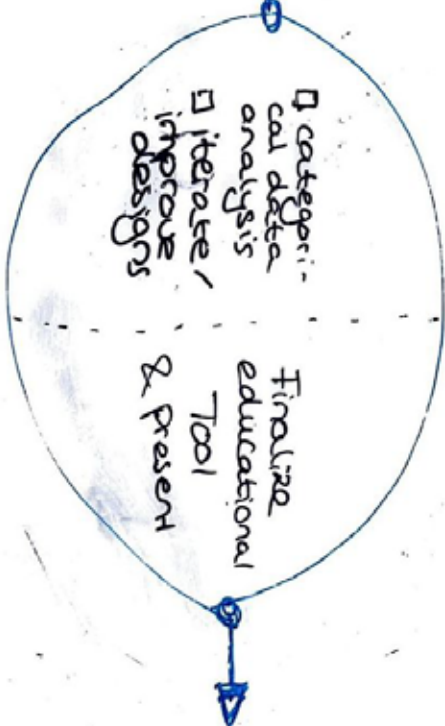 □ categori-
cal data
analysis
□ iterate/
improve
designs
Finalize
educational
Tool
& Present